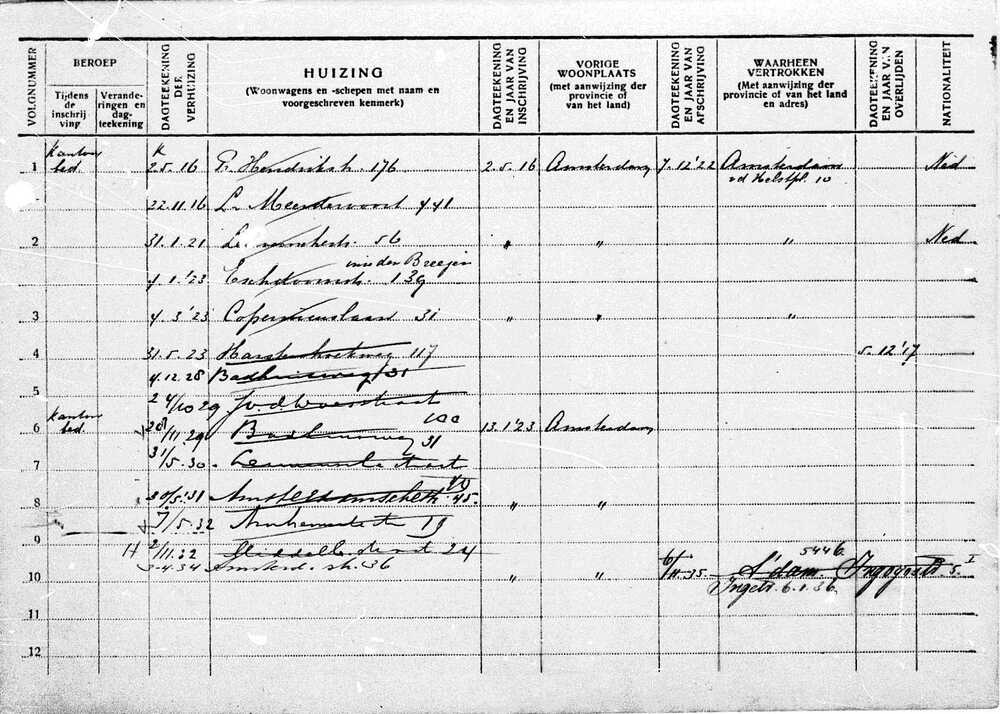 VOLGNUMMER
BEROEP
Tijdens de inschrijving
Veranderingen en dagteekening
DAGTEEKENING DER VERHUIZING
HUIZING
(Woonwagens en -schepen met naam en voorgeschreven kenmerk)
DAGTEEKENING EN JAAR VAN INSCHRIJVING
VORIGE WOONPLAATS
(met aanwijzing der provincie of van het land)
DAGTEEKENING EN JAAR VAN AFSCHRIJVING
WAARHEEN VERTROKKEN
(Met aanwijzing der provincie of van het land en adres)
DAGTEEKENING EN JAAR VAN OVERLIJDEN
NATIONALITEIT
Kantoor K
1 bed. 2.5.16 P. Hendrikstr. 176 2.5.16 Amsterdam 7.12'22 Amsterdam Ned
vd Helstpl. 10
22.11.16 L. Meerdervoort 441
2 31.1.21 56 " " " Ned
van den Breejen
4.1.'23 Eschdoornstr. 139
3 4.3'23 Copernicuslaan 31 " " "
4 31.5.23 Harstenhoekweg 117 5.12'17
4.12.28 Badhuisweg 131
5
24/10 29 J. v. d. straat
Kantoor 100
6 bed. 28/11.29 Badhuisweg 31 13.1'23 Amsterdam
7 31/5.30 straat
8 30/5.'31 Amsterdamschestr. 45. " "
7/5.32 Arnhemschestr 19
9
H 2/11.32 straat 24 5446
3.4.34 Amsterd. str. 36
10 " " 6/11.35 A'dam 5. I
Ingetr. 6.1.36
11
12